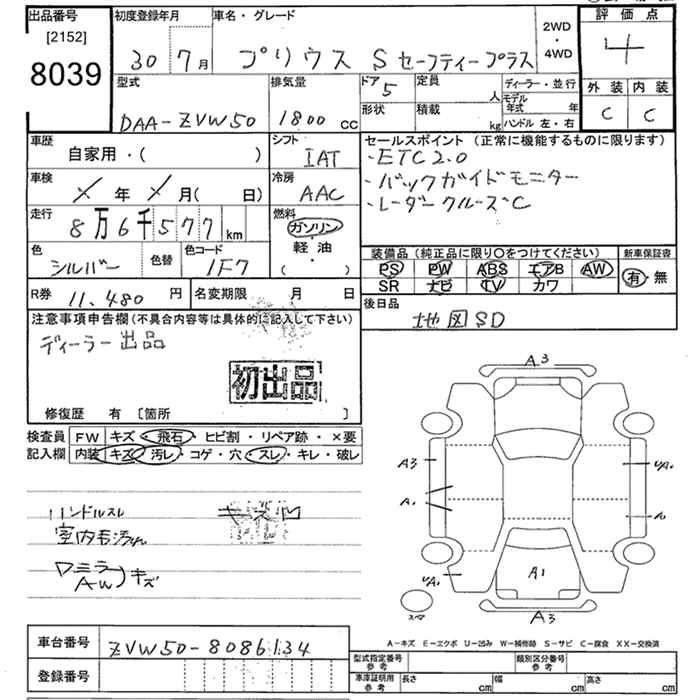 出品番号
[2152]
8039
初度登録年月
30 7月
車名・グレード
プリウス Sセーフティープラス
2WD
・
4WD
評価点
4
型式
DAA-ZVW50
排気量
1800 CC
ドア 5
形状
定員
人
積載
kg
ディーラー・並行
モデル年式 年
ハンドル 左・右
外装 内装
C C
車歴
自家用・( )
シフト
IAT
車検
X年X月( 日)
冷房
AAC
走行
8万6千577km
燃料
ガソリン
・
軽油
( )
色
シルバー
色替
色コード
1F7
R券 11,480円
名変期限 月 日
セールスポイント(正常に機能するものに限ります)
・ETC2.0
・バックガイドモニター
・レーダークルーズC
装備品(純正品に限り○をつけてください)
PS PW ABS エアB AW
SR ナビ TV カワ
新車保証書
有・無
後日品
地図SD
注意事項申告欄(不具合内容等は具体的に記入して下さい)
ディーラー出品
初出品
修復歴 有 [箇所 ]
検査員記入欄
FW キズ・飛石・ヒビ割・リペア跡・×要
内装 キズ・汚レ・コゲ・穴・スレ・キレ・破レ
ハンドルスレ
キズ凹
室内毛
ドミラー キズ
AW
A3
A3
A1
UA1
A1
UA1
A1
A3
スペア
A-キズ E-エクボ U-凹み W-補修跡 S-サビ C-腐食 XX-交換済
車台番号
ZVW50-8086134
登録番号
型式指定番号 参考
類別区分番号 参考
車庫証明用 参考
長さ cm 幅 cm 高さ cm